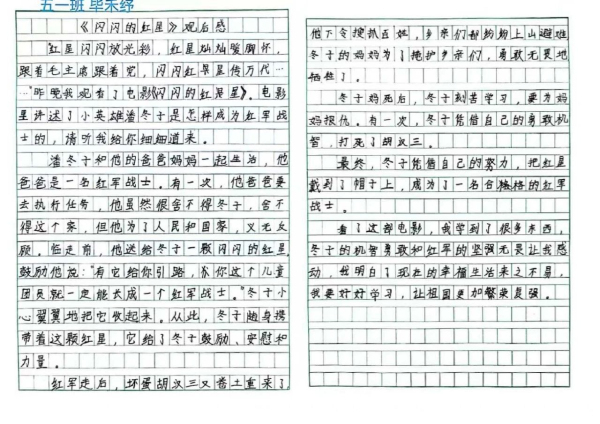 五一班 毕未纾
《闪闪的红星》观后感
红星闪闪放光彩，红星灿灿暖胸怀，
跟着毛主席跟着党，闪闪红星传万代…
…"昨晚我观看了电影《闪闪的红星》。电影
里讲述了小英雄潘冬子是怎样成为红军战
士的，请听我给你细细道来。
潘冬子和他的爸爸妈妈一起生活，他
爸爸是一名红军战士。有一次，他爸爸要
去执行任务，他虽然很舍不得冬子，舍不
得这个家，但他为了人民和国家，义无反
顾。临走前，他送给冬子一颗闪闪的红星，
鼓励他说："有它给你引路，你这个儿童
团员就一定能长成一个红军战士。"冬子小
心翼翼地把它收起来。从此，冬子随身携
带着这颗红星，它给了冬子鼓励、安慰和
力量。
红军走后，坏蛋胡汉三又卷土重来了，
他下令搜抓百姓，乡亲们都纷纷上山避难，
冬子的妈妈为了掩护乡亲们，勇敢无畏地
牺牲了。
冬子妈死后，冬子刻苦学习，要为妈
妈报仇。有一次，冬子凭借自己的勇敢机
智，打死了胡汉三。
最终，冬子凭借自己的努力，把红星
戴到了帽子上，成为了一名合格的红军
战士。
看了这部电影，我学到了很多东西，
冬子的机智勇敢和红军的坚强无畏让我感
动，我明白了现在的幸福生活来之不易，
我要好好学习，让祖国更加繁荣复强。